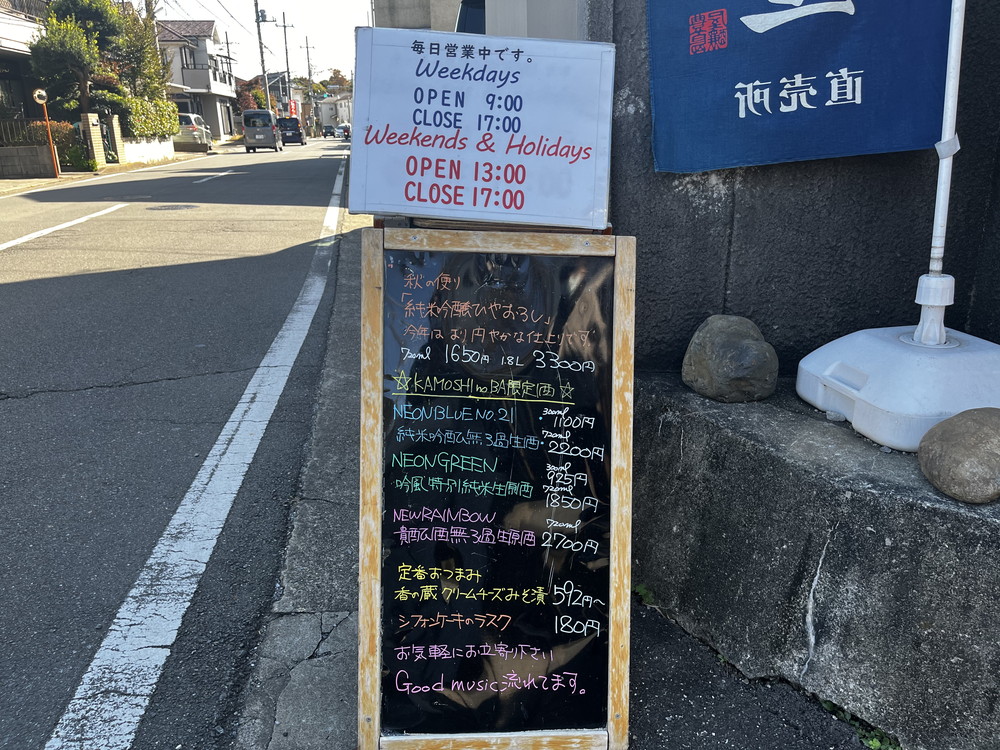 毎日営業中です。
Weekdays
OPEN 9:00
CLOSE 17:00
Weekends & Holidays
OPEN 13:00
CLOSE 17:00
直売所
秋の便り
「純米吟醸ひやおろし」
今年はより円やかな仕上りです
720ml 1650円 1.8L 3300円
☆KAMOSHI no BA限定酒☆
NEON BLUE No.21 300ml 1100円
純米吟酉ひ無ろ過生酒・720ml 2200円
NEON GREEN 300ml 925円
吟風特別純米生原酒 720ml 1850円
NEW RAINBOW 720ml
貴酉ひ酒無ろ過生原酒 2700円
定番おつまみ
香の蔵クリームチーズみそ漬 592円～
シフォンケーキのラスク 180円
お気軽にお立寄り下さい
Good music流れてます。